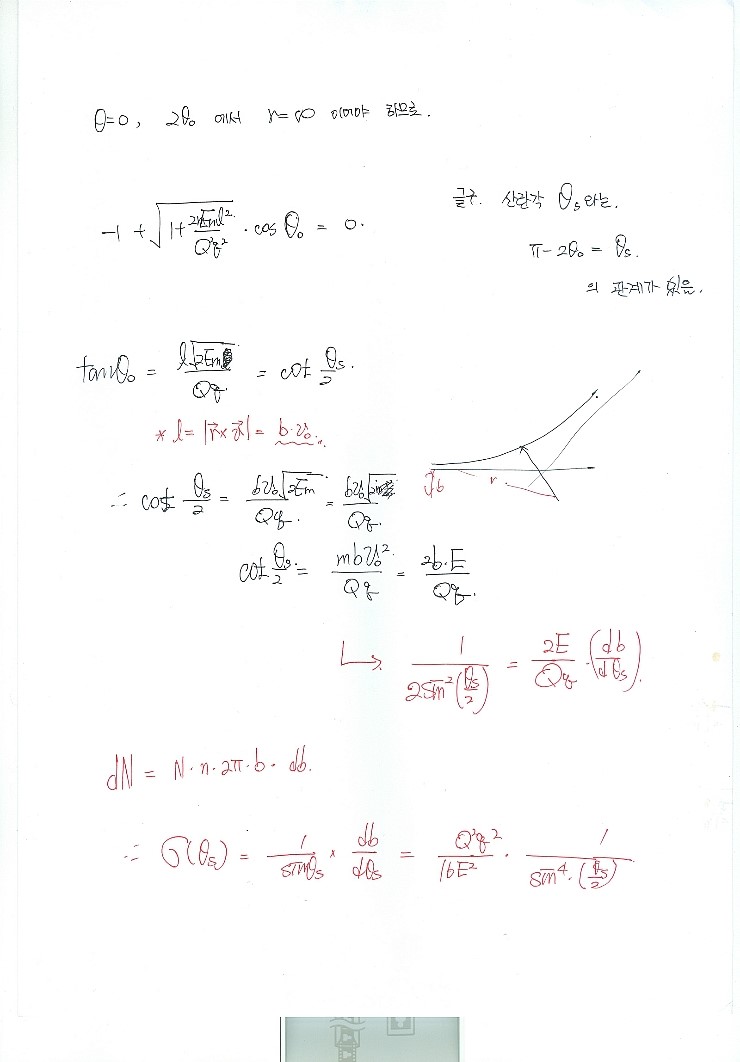 θ=0, 2θ₀ 에서 r=∞ 이어야 하므로.
-1 + √(1+ 2Eml²/Q²q²) · cos θ₀ = 0.
산란각 θs 라는.
π-2θ₀ = θs.
의 관계가 있음.
tanθ₀ = l√(2Em)/Qq = cot θs/2.
* l = |r⃗×v⃗| = b·v₀.
r
b
∴ cot θs/2 = bv₀√(2Em)/Qq. =
cot θs/2 = mbv₀²/Qq = 2b·E/Qq.
↳ 1/(2sin²(θs/2)) = 2E/Qq · (db/dθs).
dN = N·n·2π·b·db.
∴ σ(θs) = 1/sinθs × db/dθs = Q²q²/16E² · 1/(sin⁴·(θs/2))